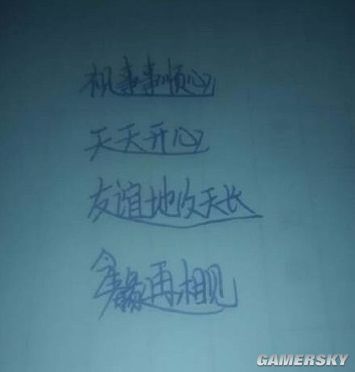 祝事事顺心
天天开心
友谊地久天长
再相见
GAMERSKY